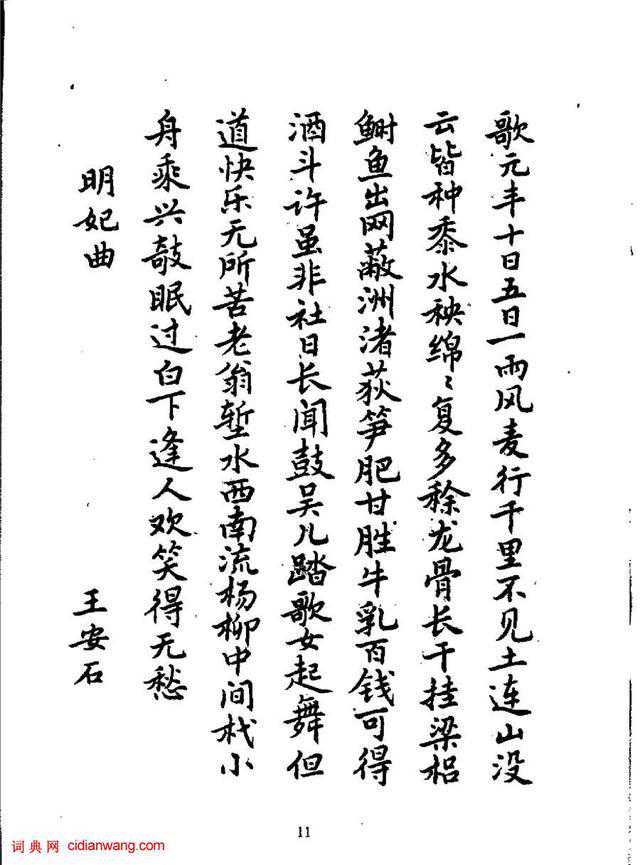 歌元丰十日五日一雨风麦行千里不见土连山没
云皆种黍水秧绵〻复多稌龙骨长干挂梁梠
鲥鱼出网蔽洲渚荻笋肥甘胜牛乳百钱可得
酒斗许虽非社日长闻鼓吴儿踏歌女起舞但
道快乐无所苦老翁堑水西南流杨柳中间杙小
舟乘兴敧眠过白下逢人欢笑得无愁
明妃曲
王安石
11
词典网 cidianwang.com